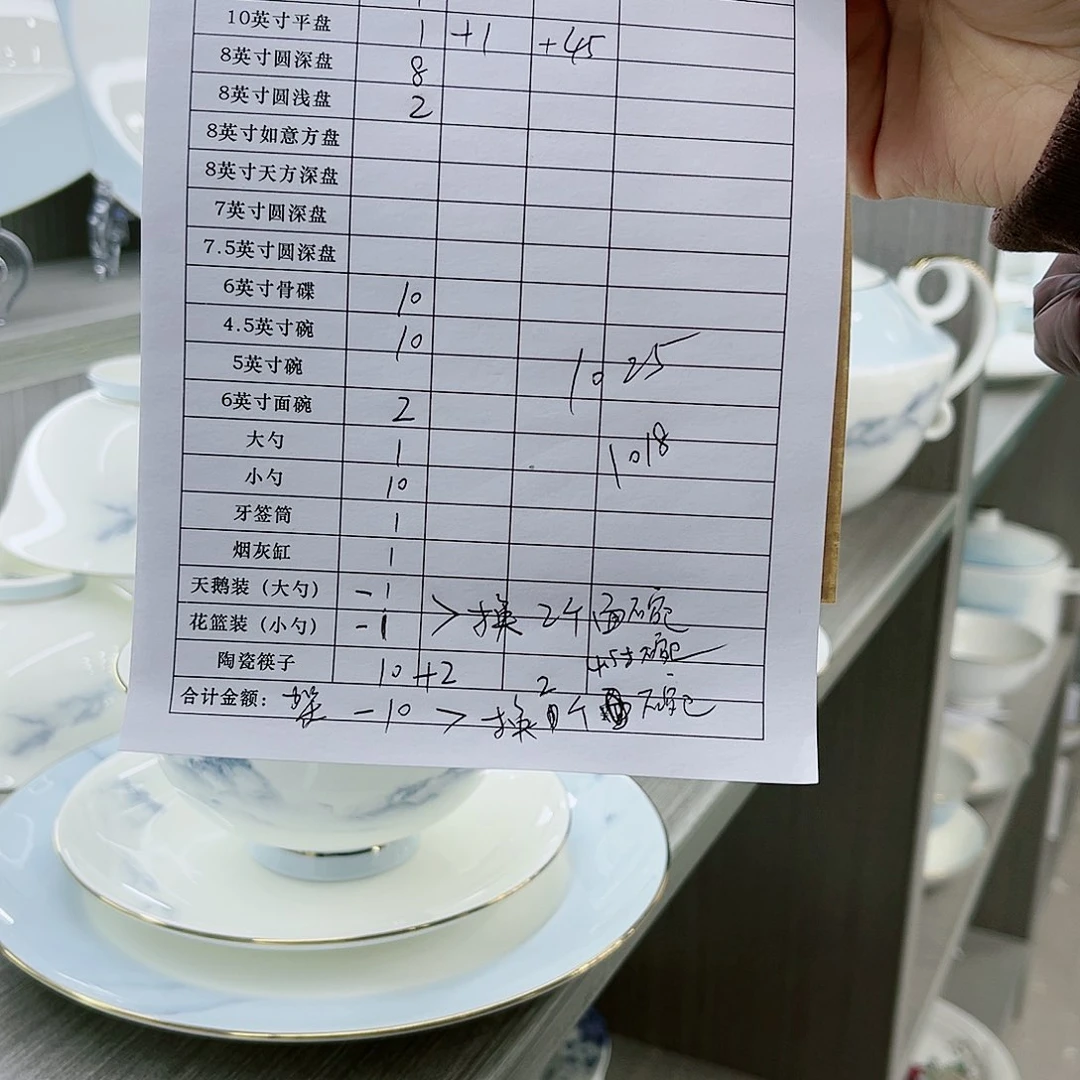 10英寸平盘 1 +1 +45
8英寸圆深盘 8
8英寸圆浅盘 2
8英寸如意方盘
8英寸天方深盘
7英寸圆深盘
7.5英寸圆深盘
6英寸骨碟 10
4.5英寸碗 10
5英寸碗 10 25
6英寸面碗 2
大勺 1 1018
小勺 10
牙签筒 1
烟灰缸 1
天鹅装（大勺） -1
花篮装（小勺） -1 > 换 2个面碗
陶瓷筷子 10 +2 4.5寸碗
合计金额: 架 -10 > 换 2个 碗